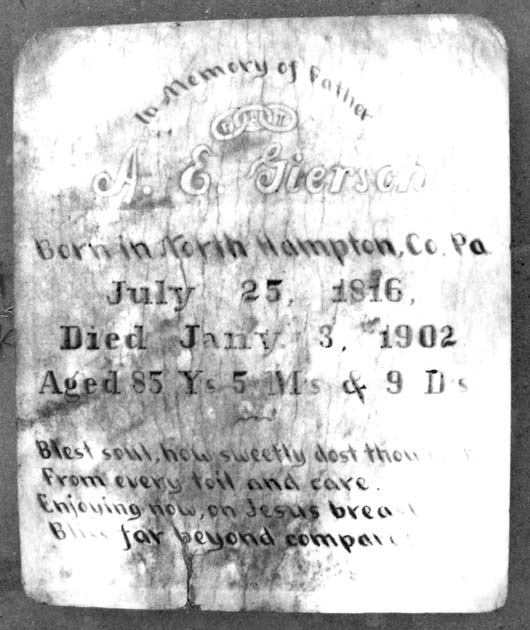 In Memory of Father
A. E. Giersch
Born in North Hampton, Co. Pa
July 25, 1816,
Died Jany 3, 1902
Aged 85 Ys 5 M's & 9 D's
Blest soul, how sweetly dost thou
From every toil and care.
Enjoying now, on Jesus breast
Bliss far beyond compare